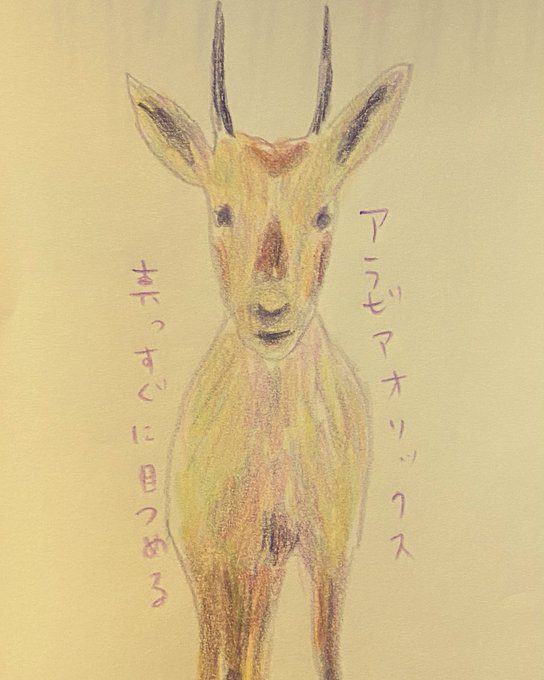 アラビアオリックス
真っすぐに目つめる